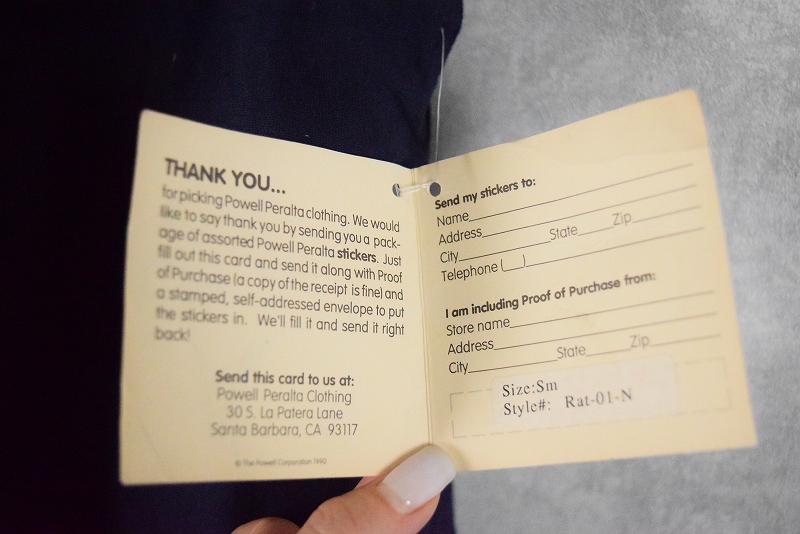 THANK YOU...
for picking Powell Peralta clothing. We would
like to say thank you by sending you a pack-
age of assorted Powell Peralta stickers. Just
fill out this card and send it along with Proof
of Purchase (a copy of the receipt is fine) and
a stamped, self-addressed envelope to put
the stickers in. We'll fill it and send it right
back!
Send this card to us at:
Powell Peralta Clothing
30 S. La Patera Lane
Santa Barbara, CA 93117
© The Powell Corporation 1990
Send my stickers to:
Name
Address
City State Zip
Telephone ( )
I am including Proof of Purchase from:
Store name
Address
City State Zip
Size:Sm
Style#: Rat-01-N